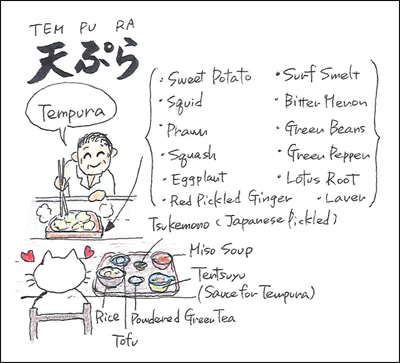 TEM PU RA
天ぷら
Tempura
・Sweet Potato
・Squid
・Prawn
・Squash
・Eggplant
・Red Pickled Ginger
・Surf Smelt
・Bitter Menon
・Green Beans
・Green Pepper
・Lotus Root
・Laver
Tsukemono (Japanese Pickled)
Miso Soup
Tentsuyu
(Sauce for Tempura)
Rice
Powdered Green Tea
Tofu